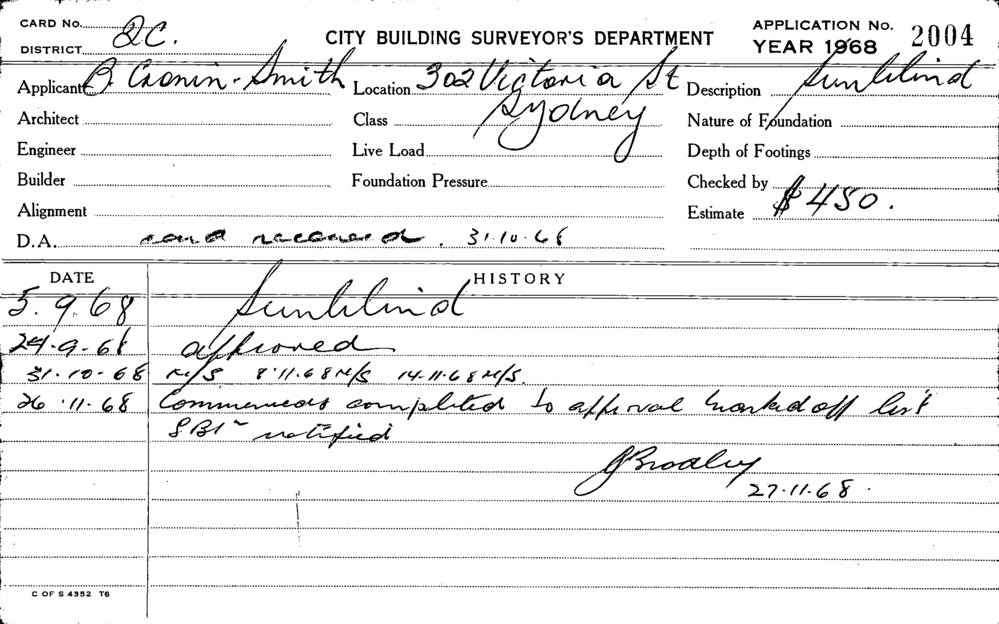 CARD No.
DISTRICT QC.
CITY BUILDING SURVEYOR'S DEPARTMENT
APPLICATION No. 2004
YEAR 1968
Applicant B. Cronin-Smith Location 302 Victoria St Description Sunblind
Architect Class Sydney Nature of Foundation
Engineer Live Load Depth of Footings
Builder Foundation Pressure Checked by
Alignment Estimate $450.
D.A. card received. 31.10.68
DATE HISTORY
5.9.68 Sunblind
24.9.68 approved
31.10.68 N/S 8.11.68 N/S 14.11.68 N/S.
26.11.68 completed to approval marked off list
notified
27.11.68.
C OF S 4352 T6